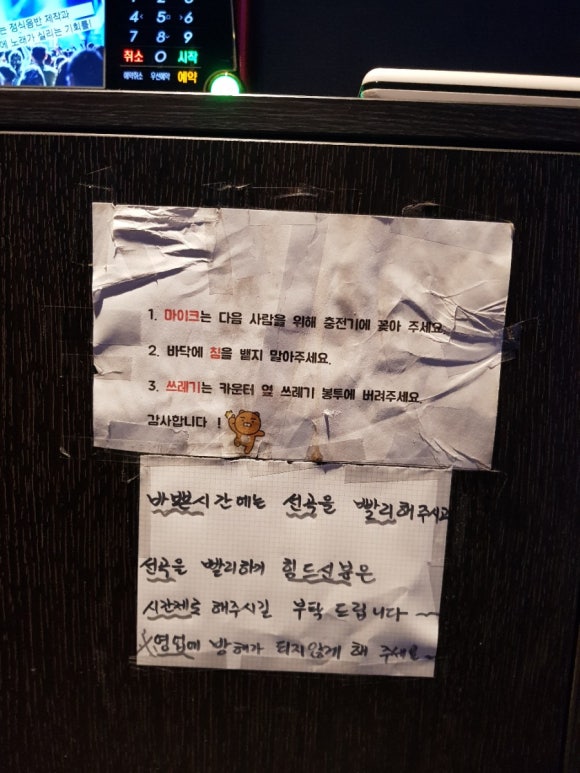 는 정식음반 제작과
에 노래가 실리는 기회를!
4 5 6
7 8 9
취소 0 시작
예약취소 우선예약 예약
1. 마이크는 다음 사람을 위해 충전기에 꽂아 주세요.
2. 바닥에 침을 뱉지 말아주세요.
3. 쓰레기는 카운터 옆 쓰레기 봉투에 버려주세요.
감사합니다 !
바쁜시간에는 선곡을 빨리해주시고
선곡을 빨리하기 힘드신분은
시간제로 해주시길 부탁 드립니다~
※영업에 방해가 되지않게 해 주세요~